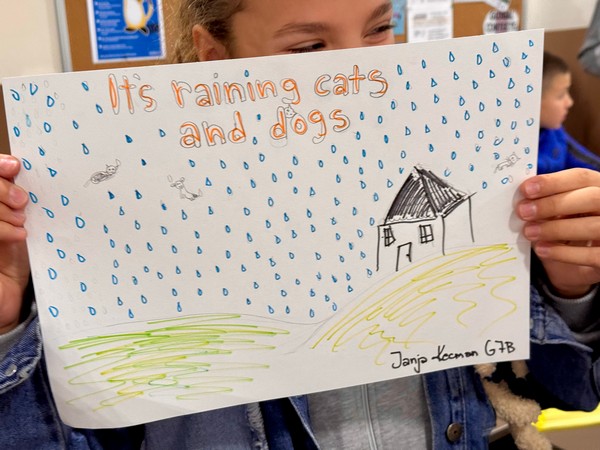 It's raining cats
and dogs
Janja Kecman G7B